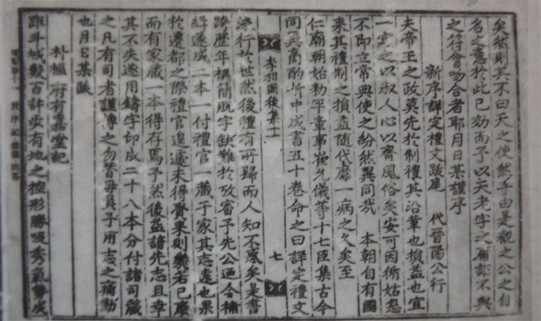 矣然則其不曰天之使然乎由是觀之公之自
名之意於此已効而予以天老字之庸詎不與
之符會吻合者耶月日某禮序
新序詳定禮文跋尾 代晉陽公行
夫帝王之政莫先於制禮其沿革也損益也宜
一定之以淑人心以齊風俗矣安可因循姑息
不即立常典使之紛然異同哉 本朝自有國
來其禮制之損益隨代靡一病之久矣至
仁廟朝始勑平章事崔允儀等十七臣集古今
同異商酌折中成書五十卷命之曰詳定禮文
李相國後集十一 七
流行於世然後禮有所歸而人知不惑矣是書
跨歷年禩簡脫字缺難於攷審予先公迺令補
緝遂成二本一付禮官一藏于家其志遠也果
於遷都之際禮官遑遽未得賫來則幾若已廢
而有家藏一本得存焉予然後益諳先志且幸
其不失遂用鑄字印成二十八本分付諸司藏
之凡有司者謹傳之勿替毋負予用志之痛勤
也月日某跋
朴樞府有嘉堂記
距斗城數百許步有地之控形勝吸秀氣勢成